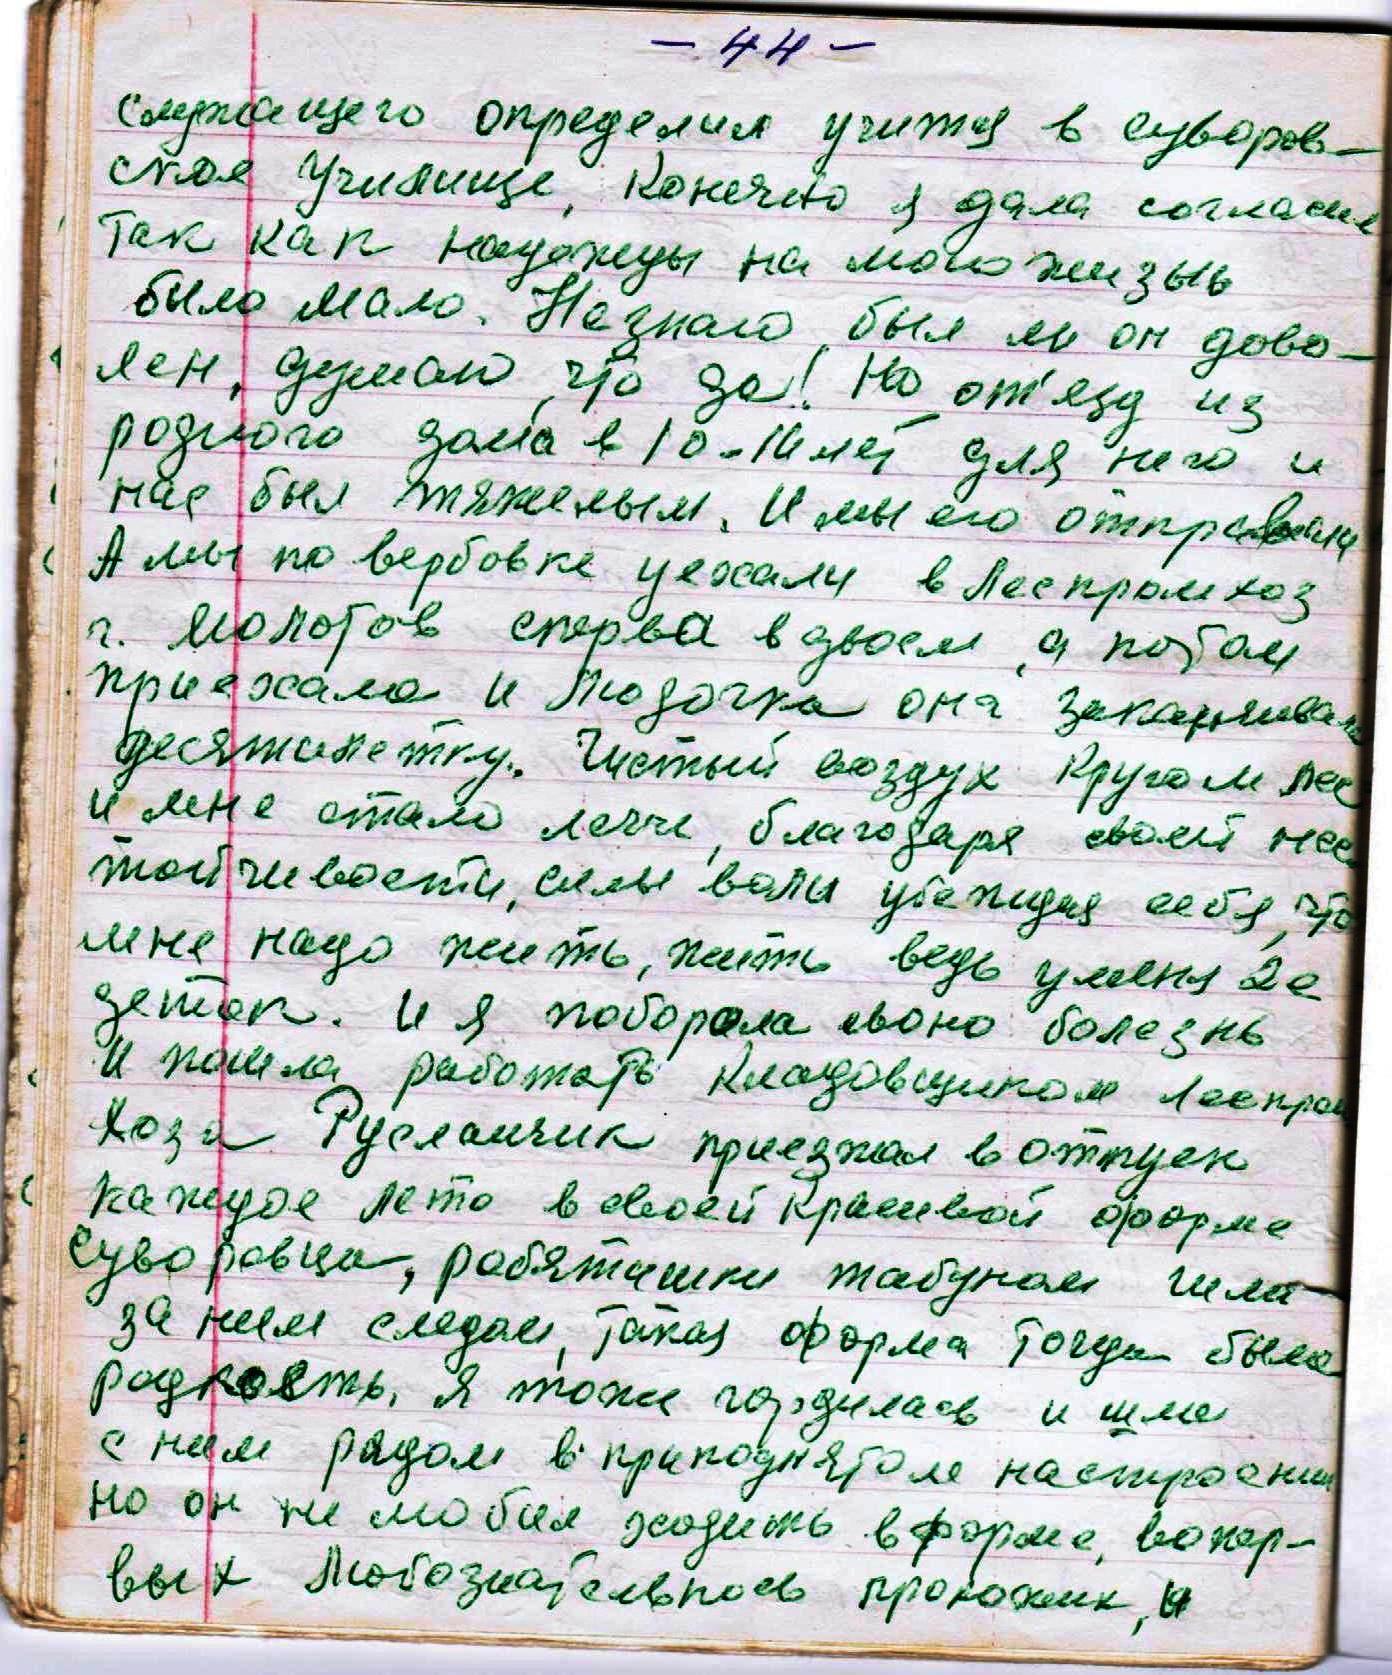 - 44 -
служащего определил учится в суворов-
ское училище, Конечно я дала согласие
Так как надежды на мою жизнь
было мало. Незнаю, был ли он дово-
лен, думаю, что да! Но от'езд из
родного дома в 10-11 лет для него и
нас был тяжелым. И мы его отправили
А мы по вербовке уехали в Леспромхоз
г. Молотов сперва вдвоем, а потом
приехала и Людочка она заканчивала
десятилетку. Чистый воздух Кругом лес
и мне стало легче, благодаря своей нас
тойчивости, силы воли убеждая себя, что
мне надо жить, жить ведь уменя 2е
деток. И я поборола свою болезнь
И пошла работать Кладовщиком Леспром
хоза Русланчик приезжал в отпуск
каждое лето в своей красивой форме
Суворовца, робятишки табуном шли
за ним следом, такая форма тогда была
редкость. Я тоже гордилась и шла
с ним рядом в приподнятом настроении
но он не любил ходить в форме, вопер-
вых Любознательность прохожих, и